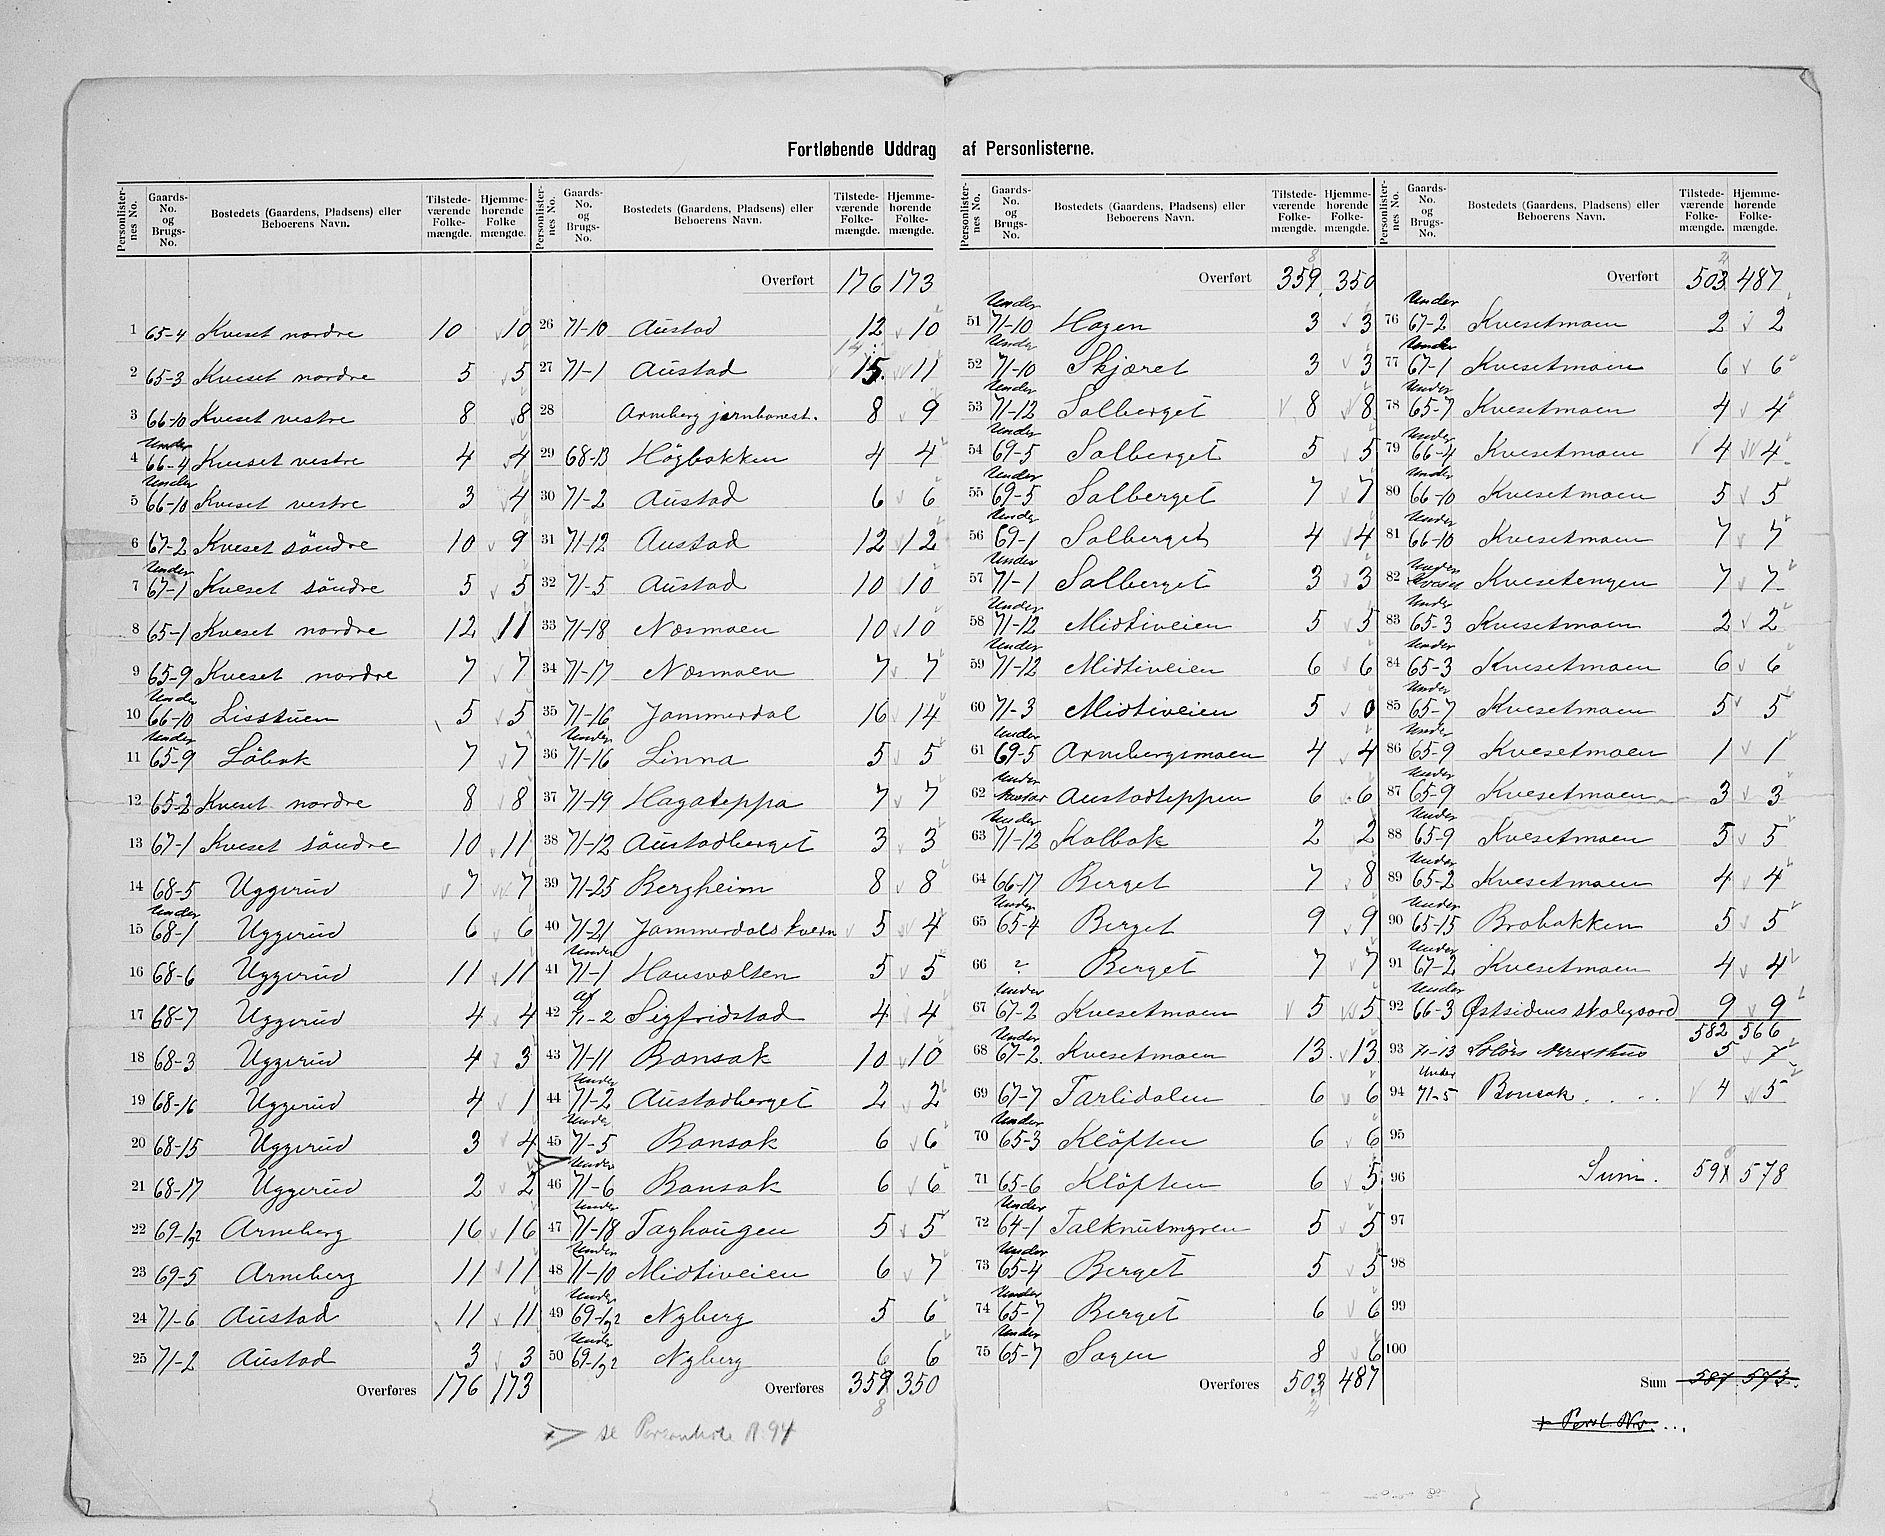 Fortløbende Uddrag af Personlisterne.
Personlister-nes No. Gaards-No. og Brugs-No. Bostedets (Gaardens, Pladsens) eller Beboerens Navn. Tilstede-værende Folke-mængde. Hjemme-hørende Folke mængde.
1 65-4 Kveset nordre 10 10
2 65-3 Kveset nordre 5 5
3 66-10 Kveset vestre 8 8
4 Under 66-4 Kveset vestre 4 4
5 Under 66-10 Kveset vestre 3 4
6 67-2 Kveset söndre 10 9
7 Under 67-1 Kveset söndre 5 5
8 65-1 Kveset nordre 12 11
9 65-9 Kveset nordre 7 7
10 Under 66-10 Lisstuen 5 5
11 Under 65-9 Löbak 7 7
12 65-2 Kveset nordre 8 8
13 67-1 Kveset söndre 10 11
14 68-5 Uggerud 7 7
15 Under 68-1 Uggerud 6 6
16 68-6 Uggerud 11 11
17 68-7 Uggerud 4 4
18 68-3 Uggerud 4 3
19 68-16 Uggerud 4 1
20 68-15 Uggerud 3 4
21 68-17 Uggerud 2 2
22 69-1,2 Arneberg 16 16
23 69-5 Arneberg 11 11
24 71-6 Austad 11 11
25 71-2 Austad 3 3
Overføres 176 173
Personlister-nes No. Gaards-No. og Brugs-No. Bostedets (Gaardens, Pladsens) eller Beboerens Navn. Tilstede-værende Folke-mængde. Hjemme-hørende Folke-mængde.
Overført 176 173
26 71-10 Austad 12 10
27 71-1 Austad 14 15 11
28 Arneberg jernbanest. 8 9
29 68-13 Högbakken 4 4
30 71-2 Austad 6 6
31 71-12 Austad 12 12
32 71-5 Austad 10 10
33 71-18 Næsmoen 10 10
34 71-17 Næsmoen 7 7
35 71-16 Jammerdal 16 14
36 Under 71-16 Linna 5 5
37 71-19 Hagateppa 7 7
38 71-12 Austadberget 3 3
39 71-25 Bergheim 8 8
40 71-21 Jammerdals kvern 5 4
41 Under 71-1 Hausvolten 5 5
42 Af 71-2 Sigfridstad 4 4
43 71-11 Bansak 10 10
44 Under 71-2 Austadberget 2 2
45 Under 71-5 Bansak 6 6
46 Under 71-6 Bansak 6 6
47 Under 71-18 Taghaugen 5 5
48 Under 71-10 Midtiveien 6 7
49 Under 69-1,2 Nyberg 5 6
50 Under 69-1,2 Nyberg 6 6
Overføres 359 350
8
se Personliste N. 94
Personlister-nes No. Gaards-No. og Brugs-No. Bostedets (Gaardens, Pladsens) eller Beboerens Navn. Tilstede-værende Folke-mængde. Hjemme-hørende Folke-mængde.
8
Overført 359 350
51 Under 71-10 Hagen 3 3
52 Under 71-10 Skjæret 3 3
53 Under 71-12 Solberget 8 8
54 Under 69-5 Solberget 5 5
55 Under 69-5 Solberget 7 7
56 Under 69-1 Solberget 4 4
57 Under 71-1 Solberget 3 3
58 Under 71-12 Midtiveien 5 5
59 Under 71-12 Midtiveien 6 6
60 71-3 Midtiveien 5 0
61 Under 69-5 Arnebergsmoen 4 4
62 Under Austad Austadteppen 6 6
63 Under 71-12 Kolbak 2 2
64 66-17 Berget 7 8
65 Under 65-4 Berget 9 9
66 ? Berget 7 7
67 Under 67-2 Kvesetmoen 5 5
68 Under 67-2 Kvesetmoen 13 13
69 67-7 Tarlidalen 6 6
70 Under 65-3 Klöften 6 6
71 65-6 Klöften 6 5
72 Under 64-1 Talknutmyren 5 5
73 Under 65-4 Berget 5 5
74 Under 65-7 Berget 6 6
75 Under 65-7 Sagen 8 6
Overføres 503 487
2
Personlister-nes No. Gaards-No. og Brugs-No. Bostedets (Gaardens, Pladsens) eller Beboerens Navn. Tilstede-værende Folke-mængde. Hjemme-hørende Folke-mængde.
2
Overført 503 487
76 Under 67-2 Kvesetmoen 2 2
77 Under 67-1 Kvesetmoen 6 6
78 Under 65-7 Kvesetmoen 4 4
79 Under 66-4 Kvesetmoen 4 4
80 Under 66-10 Kvesetmoen 5 5
81 Under 66-10 Kvesetmoen 7 7
82 Under Kveset Kvesetengen 7 7
83 Under 65-3 Kvesetmoen 2 2
84 Under 65-3 Kvesetmoen 6 6
85 Under 65-7 Kvesetmoen 5 5
86 Under 65-9 Kvesetmoen 1 1
87 Under 65-9 Kvesetmoen 3 3
88 Under 65-9 Kvesetmoen 5 5
89 Under 65-2 Kvesetmoen 4 4
90 Under 65-15 Brobakken 5 5
91 Under 67-2 Kvesetmoen 4 4
92 Under 66-3 Østsidens skolegaard 9 9
582 566
93 71-13 Solörs 5 7
94 Under 71-5 Bonsak . . . . 4 5
95
96 Sum. 591 578
97
98
99
100
Sum 587 573.
+ Persl. No. ...